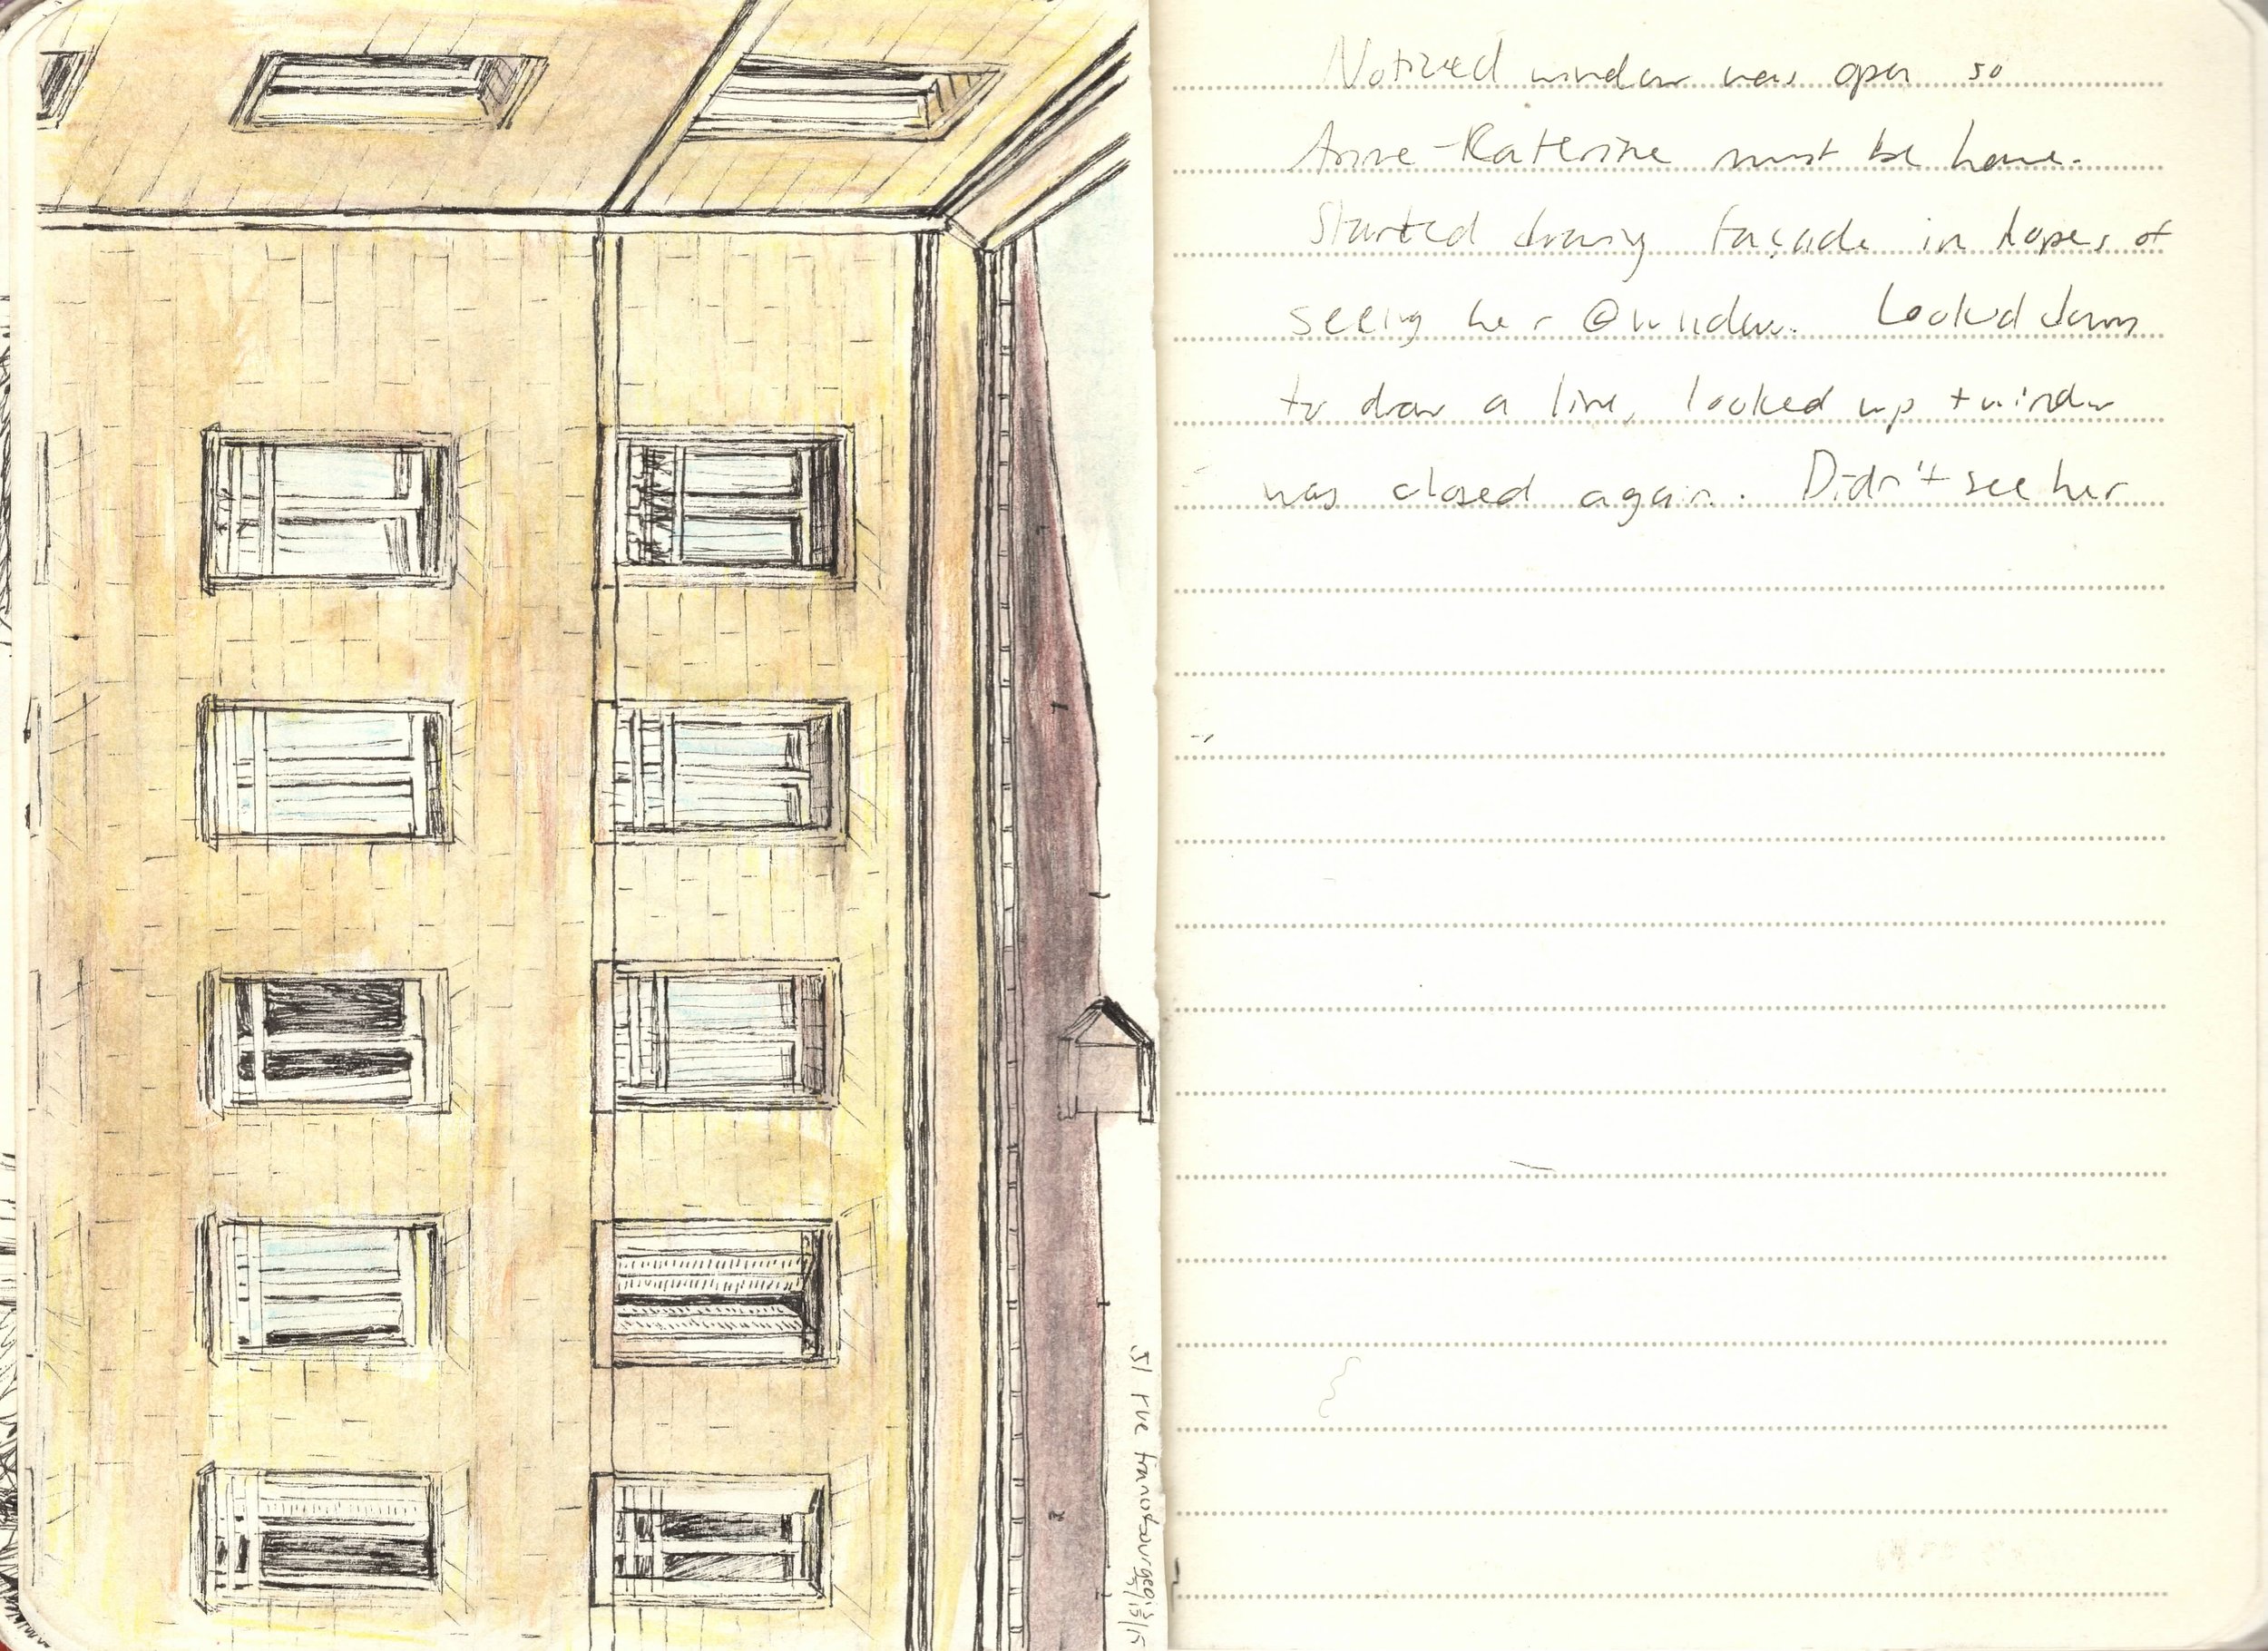 Noticed window was open so
Anne-Katerine must be home.
Started drawing façade in hopes of
seeing her @ window. Looked down
to draw a line, looked up + window
was closed again. Didn't see her
51 rue